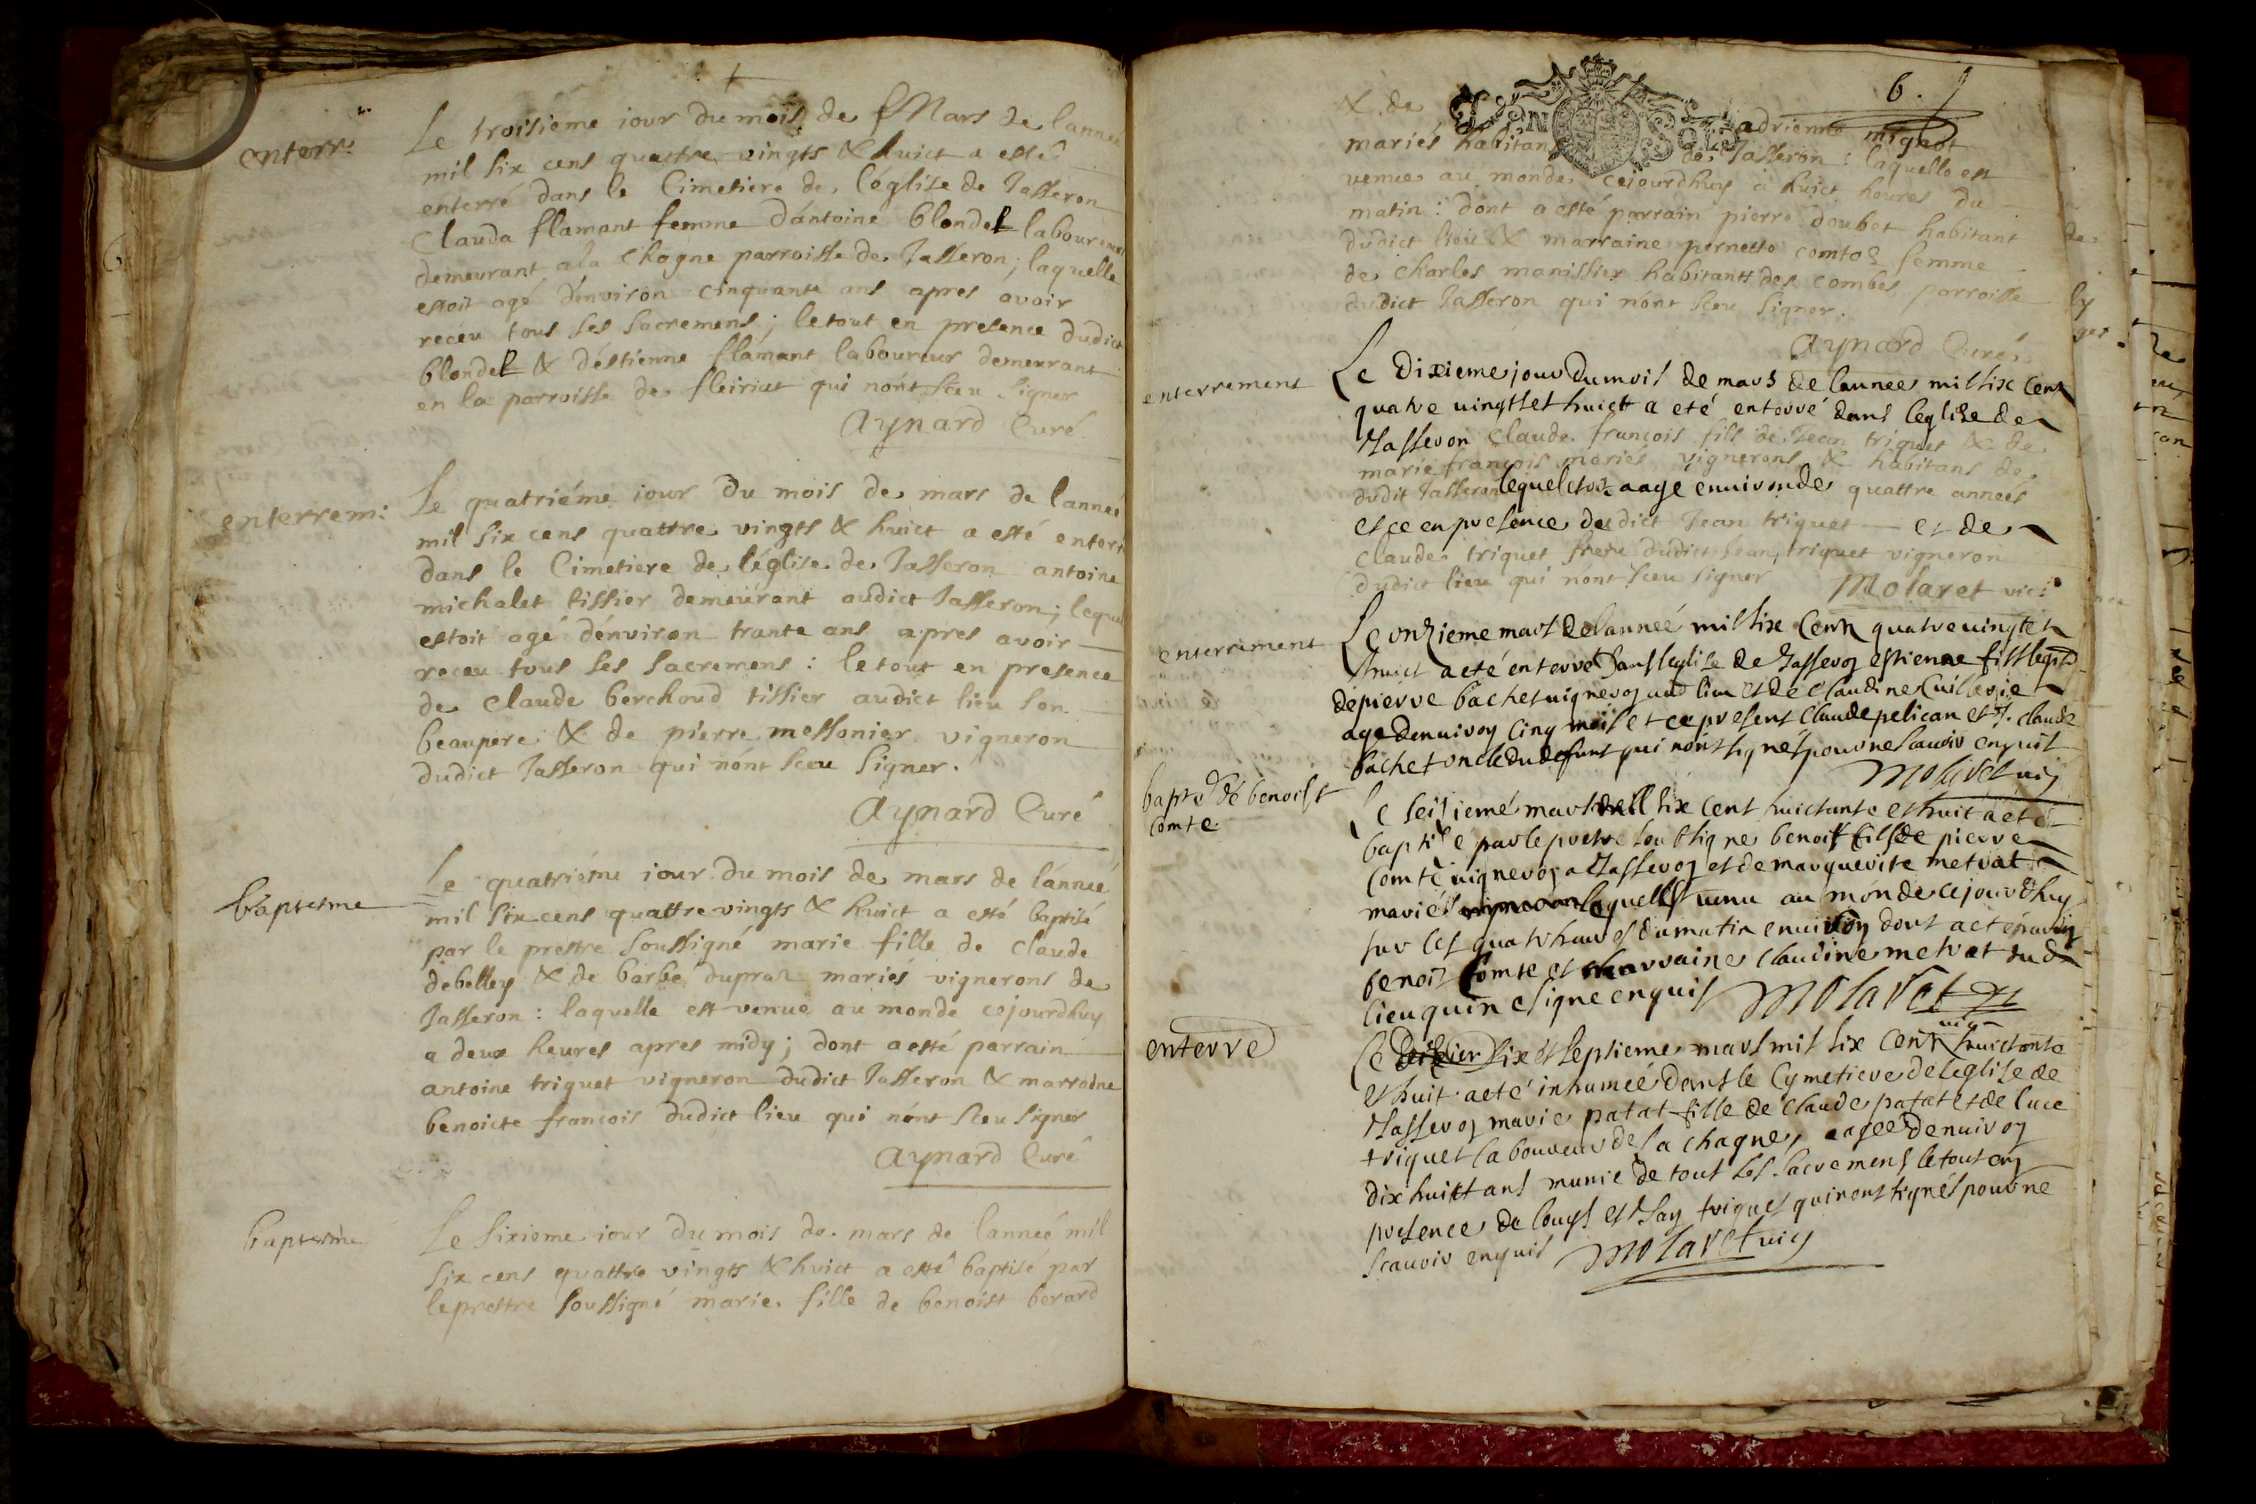 enterr:
Le troisiéme iour du mois de Mars de l'anneé
mil six cens quattre vingts & huict a esté
enterré dans le Cimetiere de l'église de Jasseron
Clauda flamant femme d'antoine blondel laboureur
demeurant a la Chagne parroisse de Jasseron; laquelle
estoit agé d'environ cinquante ans apres avoir
receu tous ses sacremens; le tout en presence dudict
blondel & d'éstienne flamant laboureur demeurant
en la parroisse de fleiriat qui nónt sceu signer
Aynard Curé
enterrem:
Le quatriéme iour du mois de mars de l'anneé
mil six cens quattre vingts & huict a esté enterré
dans le Cimetiere de l'église de Jasseron antoine
michalet tissier demeurant audict Jasseron; lequel
estoit agé d'énviron trante ans apres avoir
receu tous ses sacremens: le tout en presence
de Claude berchoud tissier audict lieu son
beaupere & de pierre messonier vigneron
dudict Jasseron qui nónt sceu signer.
Aynard Curé
baptesme
Le quatriéme iour du mois de mars de l'anneé
mil six cens quattre vingts & huict a esté baptisé
par le prestre soussigné marie fille de claude
debelley & de barbe dupraz mariés vignerons de
Jasseron: laquelle est venue au monde cejourdhuy
a deux heures apres midy; dont a esté parrain
antoine triquet vigneron dudict Jasseron & marraine
benoicte francois dudict lieu qui nónt sceu signer
Aynard Curé
baptesme
Le sixieme iour du mois de mars de l'anneé mil
six cens quattre vingts & huict a esté baptisé par
le prestre soussigné marie fille de benoist berard
6.
& de adrienne mignot
mariés habitans de Jasseron: laquelle est
venue au monde cejourdhuy a huict heures du
matin: dont a esté parrain pierre doubet habitant
dudict lieu & marraine pernette comtoz femme
de Charles manissier habitantt des combes parroisse
dudict Jasseron qui nónt sceu signer.
Aynard Curé
enterrement
Le dixieme jour du mois de mars de lannee mil six Cent
quatre uingts et huict a eté enterré dans leglise de
Jasseron Claude francois fils de Jean triquet & de
marie francois mariés vignerons & habitans de
dudit Jasseron lequel estoit aage enuiron de quattre anneés
et ce en presence dudict Jean triquet et de
Claude triquet frere dudict Jean triquet vigneron
dudict lieu qui nónt sceu signer Molaret vic:
enterrement
Le onzieme mars de lanneé mil six Cent quatre uingt et
huict a eté enterré dans leglise de Jasseron estienne fils legit
de pierre bachet uigneron aud lieu et de Claudine Cuillerie
age denuiron Cinq mois et ce present Claude pelican et Claude
bachet oncle du defunt qui nont signés pour ne scauoir enquis
Molaret uic
bapt de benoist
Comte
Le seizieme mars mill six cent huictante et huit a eté
baptise par le pretre soubsigne benoist fils de pierre
Comte uigneron a Jasseron et de marguerite metrat
mariés lequel est uenu au monde ce jourdhuy
sur les quatr heures du matin enuiron dont a eté parrain
benoit Comte et marraine Claudine metrat dud
lieu qui n e signe enquis Molaret
uic
enterré
Le dix et septieme mars mil six Cent huictante
et huit a eté inhumée dans le Cymetiere de leglise de
Jasseron marie patat fille de Claude patat et de luce
triquet laboureurs de la chagne, eagee denuiron
dix huict ans munie de tout ses sacremens le tout en
presence de louys et Jan triquet qui nont signés pour ne
scauoir enquis Molaret uic